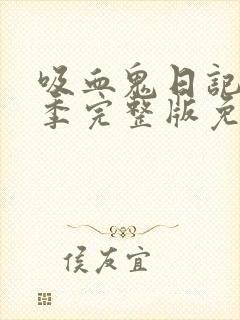 吸血鬼日記
季完整版免
侯友宜